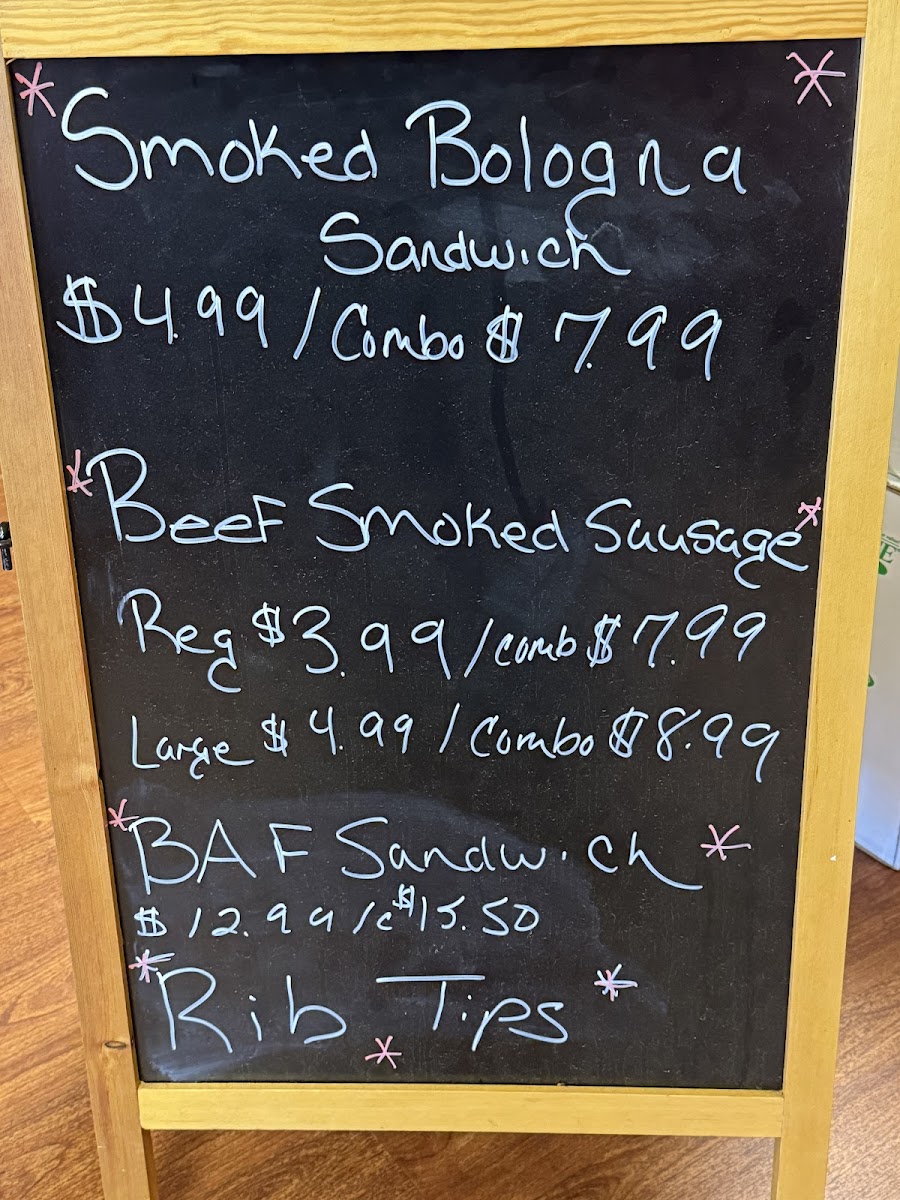 Smoked Bologna
Sandwich
$4.99 / Combo $7.99
Beef Smoked Sausage
Reg $3.99 / Comb $7.99
Large $4.99 / Combo $8.99
BAF Sandwich
$12.99 / c $15.50
Rib Tips